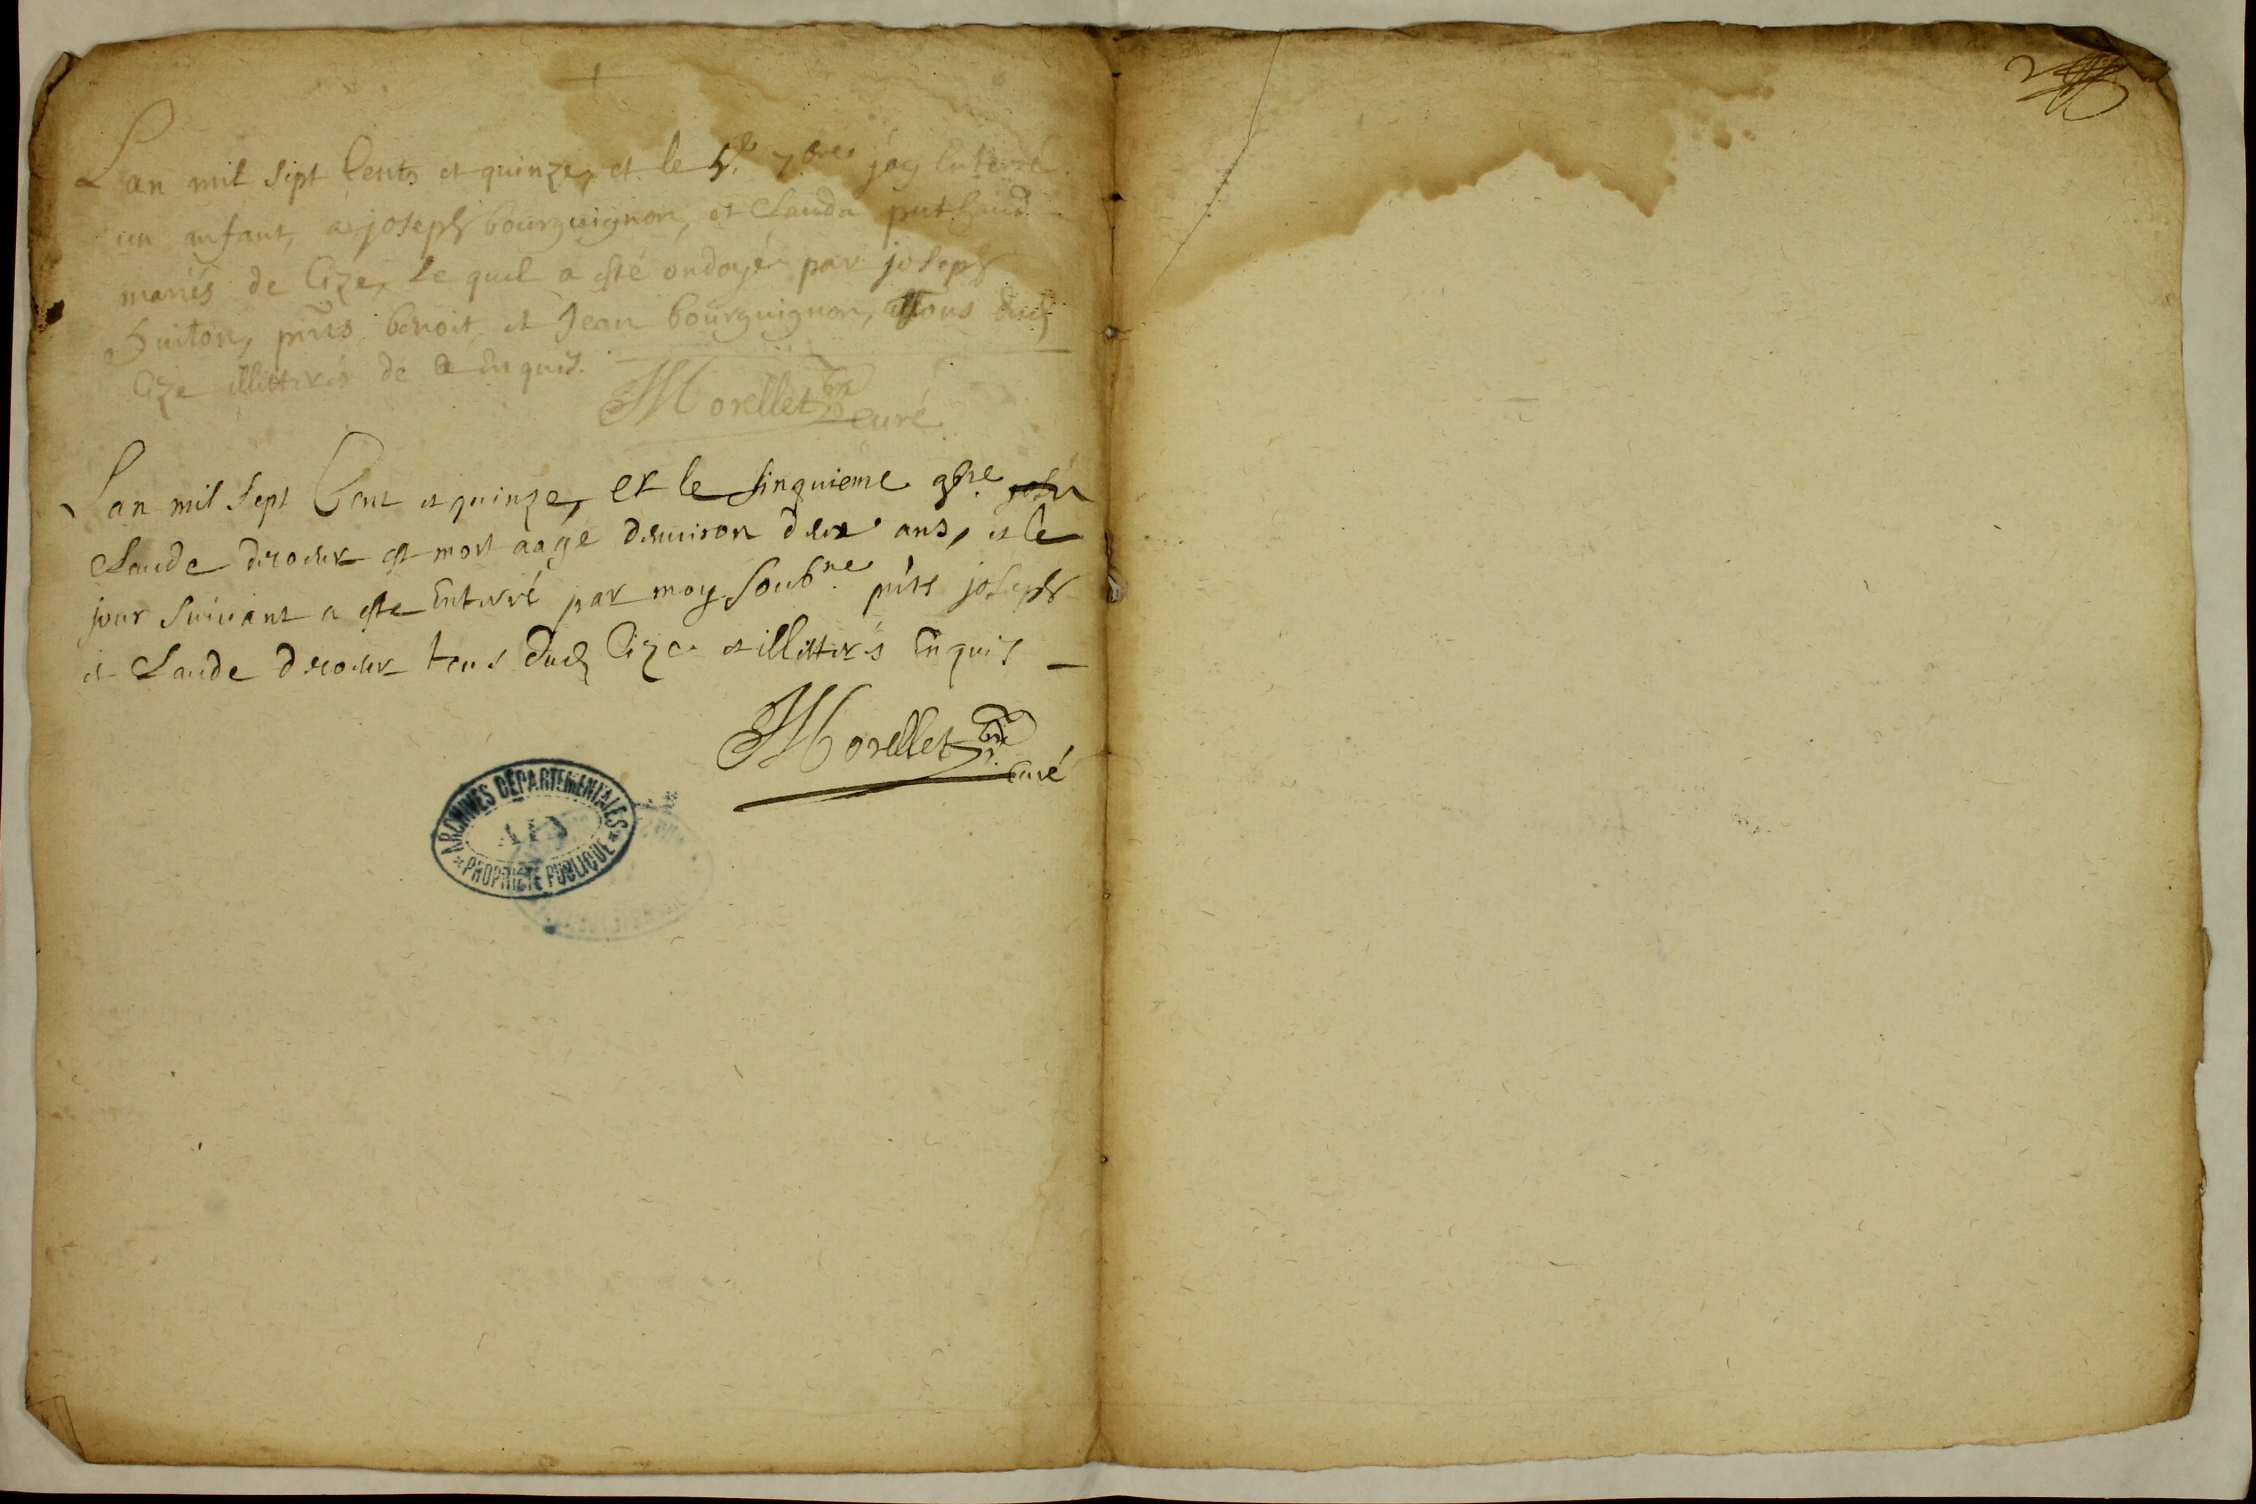 Lan mil sept Cents et quinze, et le 5e 7bre jay Enterré
un anfant, a joseph bourguignon, et Clauda puthand
mariés de Cize, le quel a esté ondoyér par joseph
Guiton, pnts benoit, et Jean bourguignon, tous dud
Cize illittérés de ce Enquis.
Morellet pbre curé
Lan mil sept Cent et quinze, et le sinquieme 9bre
Claude est mort aagé denuiron deux ans, et le
jour suiuant a esté Enterré par moy soubné pnts joseph
et Claude tous dud Cize et illittérés Enquis
Morellet pbre Curé
ARCHIVES DÉPARTEMENTALES
AIN
PROPRIÉTÉ PUBLIQUE